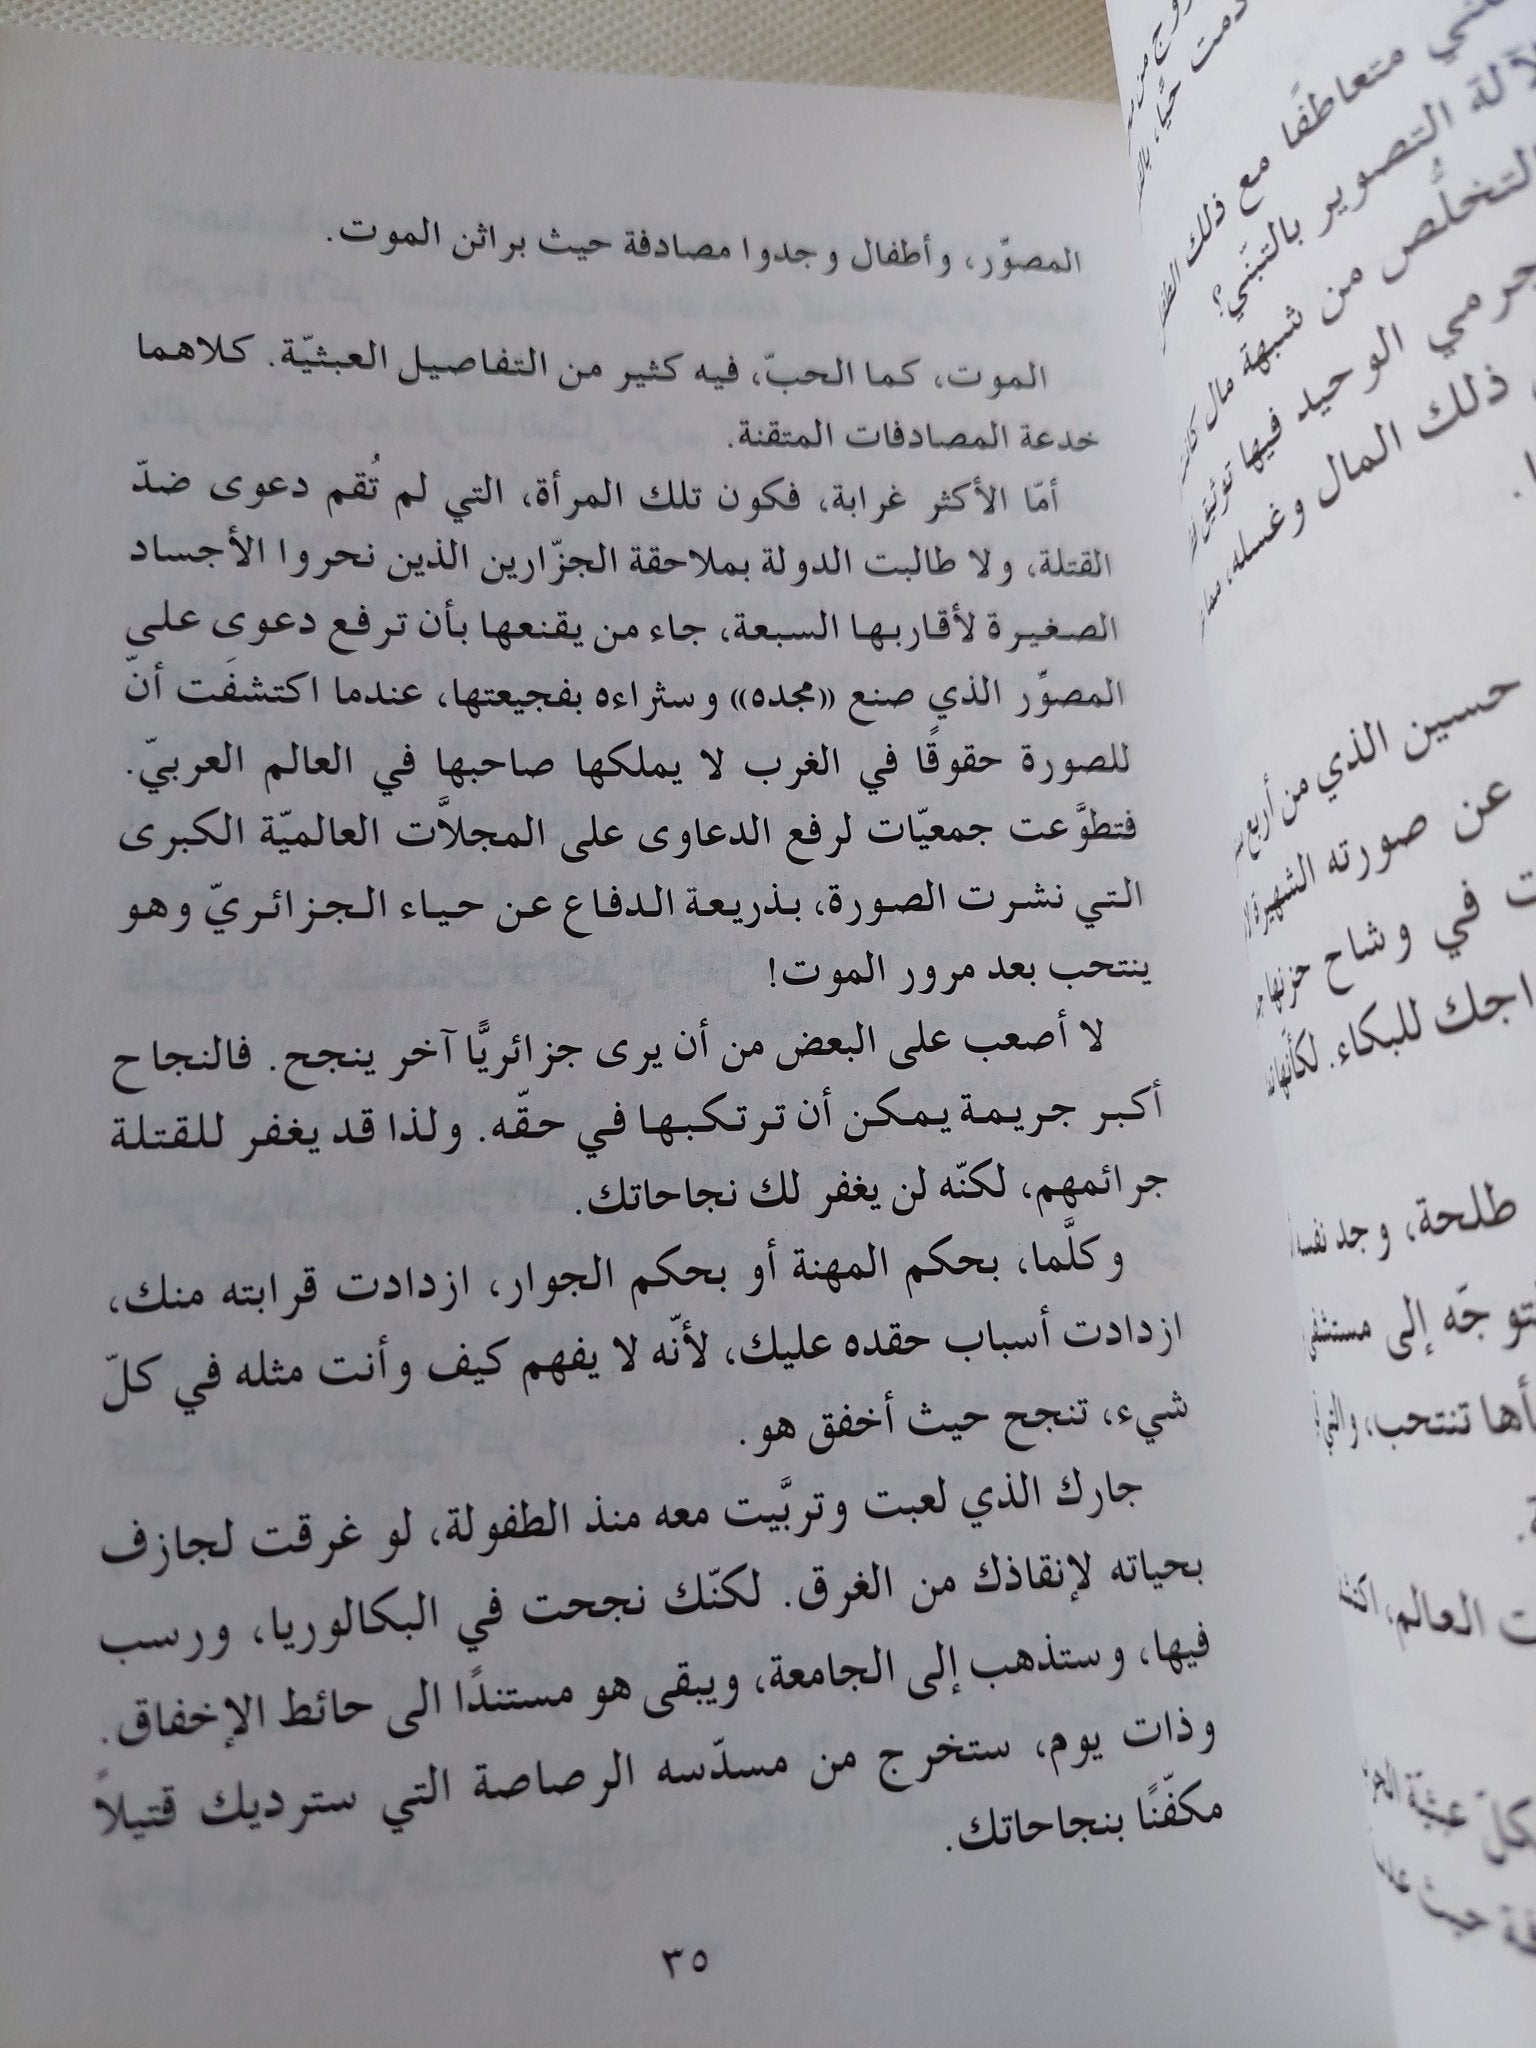 المصوّر، وأطفال وجدوا مصادفة حيث براثن الموت.
الموت، كما الحبّ، فيه كثير من التفاصيل العبثيّة. كلاهما
خدعة المصادفات المتقنة.
أمّا الأكثر غرابة، فكون تلك المرأة، التي لم تُقم دعوى ضدّ
القتلة، ولا طالبت الدولة بملاحقة الجزّارين الذين نحروا الأجساد
الصغيرة لأقاربها السبعة، جاء من يقنعها بأن ترفع دعوى على
المصوِّر الذي صنع «مجده» وسثراءه بفجيعتها، عندما اكتشفَت أنّ
للصورة حقوقًا في الغرب لا يملكها صاحبها في العالم العربيّ.
فتطوَّعت جمعيّات لرفع الدعاوى على المجلاَّت العالميّة الكبرى
التي نشرت الصورة، بذريعة الدفاع عن حياء الجزائريّ وهو
ينتحب بعد مرور الموت!
لا أصعب على البعض من أن يرى جزائريًّا آخر ينجح. فالنجاح
أكبر جريمة يمكن أن ترتكبها في حقّه. ولذا قد يغفر للقتلة
جرائمهم، لكنّه لن يغفر لك نجاحاتك.
وكلَّما، بحكم المهنة أو بحكم الجوار، ازدادت قرابته منك،
ازدادت أسباب حقده عليك، لأنّه لا يفهم كيف وأنت مثله في كلّ
شيء، تنجح حيث أخفق هو.
جارك الذي لعبت وتربَّيت معه منذ الطفولة، لو غرقت لجازف
بحياته لإنقاذك من الغرق. لكنّك نجحت في البكالوريا، ورسب
فيها، وستذهب إلى الجامعة، ويبقى هو مستندًا الى حائط الإخفاق.
وذات يوم، ستخرج من مسدّسه الرصاصة التي سترديك قتيلاً
مكفّنًا بنجاحاتك.
٣٥
متعاطفًا مع ذلك
التصوير بالتبنّي؟
التخلُّص من شبهة مال
الوحيد فيها توثيق
ذلك المال وغسله،
حسين الذي من أربع
عن صورته الشهيرة
في وشاح حزنها
للبكاء.
طلحة، وجد نفسه
إلى مستشفى
تنتحب،
العالم،
عبثيّة